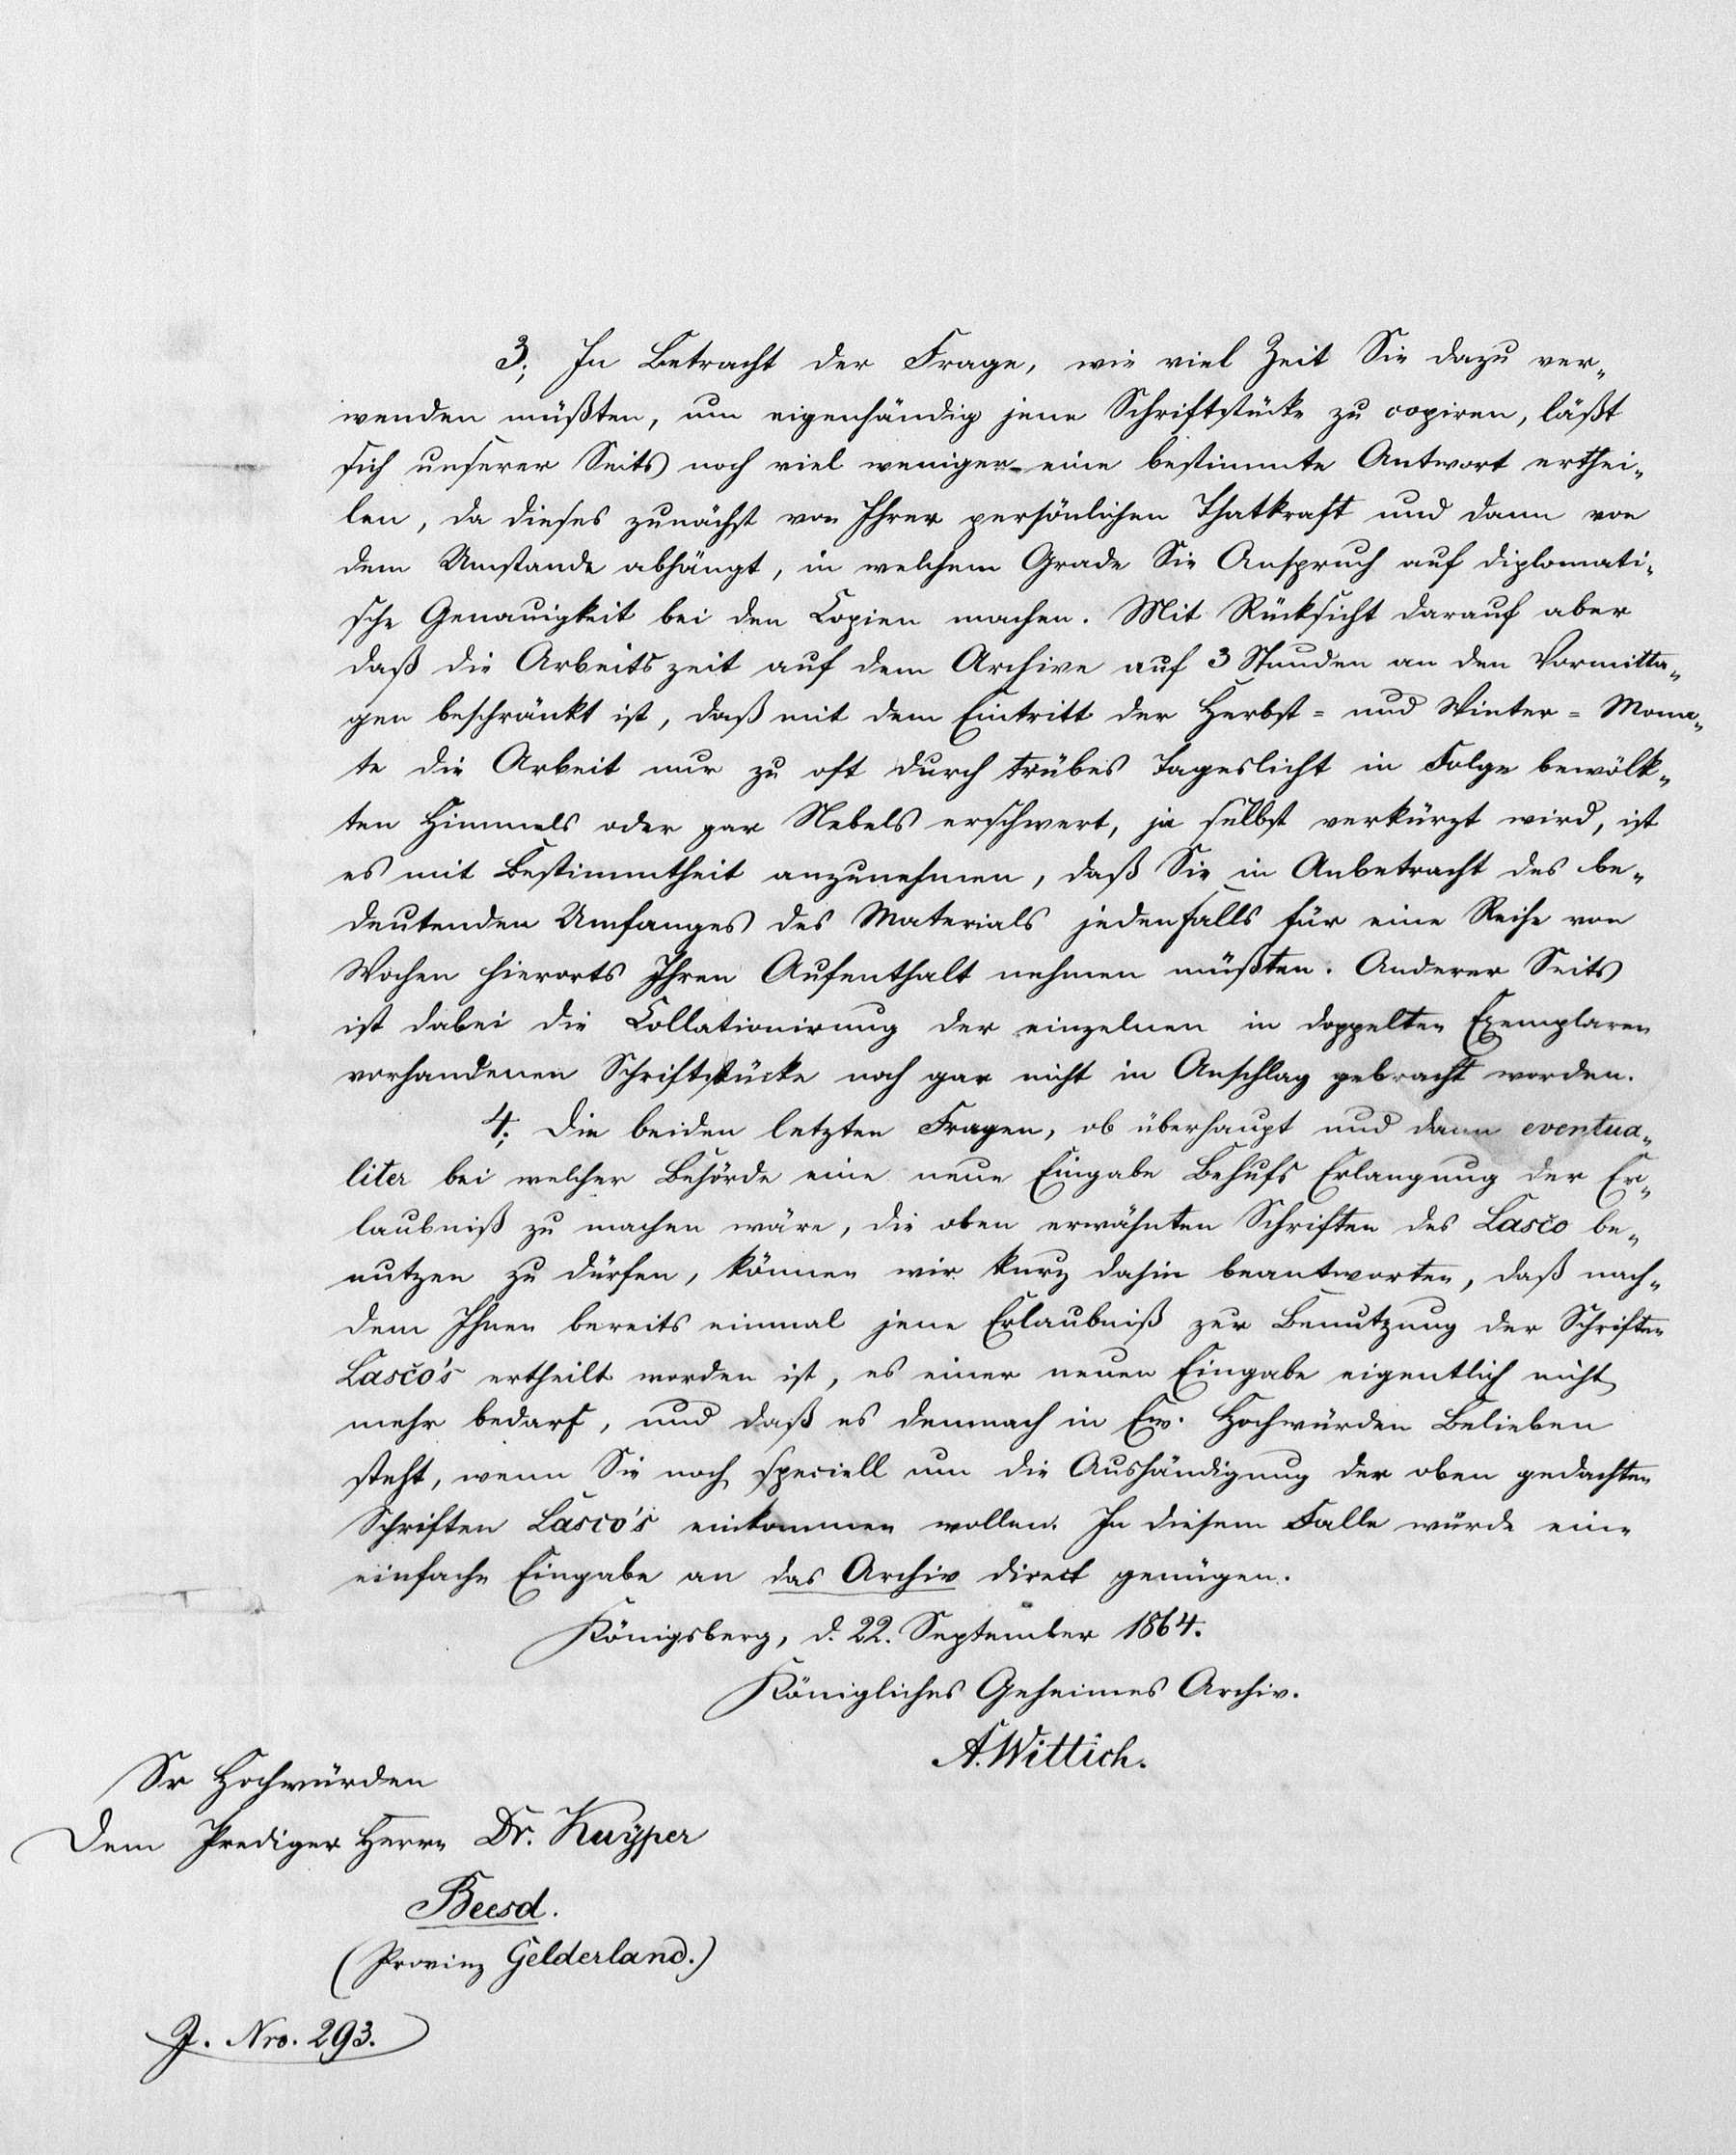 3; In Betracht der Frage, wie viel Zeit Sie dazu ver„
wenden müßten, um eigenhändig jene Schriftstücke zu copiren, läßt
sich unserer Seits noch viel weniger eine bestimmte Antwort erthei„
len, da dieses zunächst von Ihrer persönlichen Thatkraft und dann von
dem Umstande abhängt, in welchem Grade Sie Anspruch auf diplomati„
sche Genauigkeit bei den Copien machen. Mit Rücksicht darauf aber
daß die Arbeitszeit auf dem Archive auf 3 Stunden an den Vormitta„
gen beschränkt ist, daß mit dem Eintritt der Herbst= und Winter=Mona„
te die Arbeit nur zu oft durch trübes Tageslicht in Folge bewölk„
ten Himmels oder gar Nebels erschwert, ja selbst verkürzt wird, ist
es mit Bestimmtheit anzunehmen, daß Sie in Anbetracht des be„
deutenden Umfanges des Materials jedenfalls für eine Reihe von
Wochen hierorts Ihren Aufenthalt nehmen müßten. Anderer Seits
ist dabei die Collationirung der einzelnen in doppelten Exemplaren
vorhandenen Schriftstücke noch gar nicht in Anschlag gebracht worden.
4; Die beiden letzten Fragen, ob überhaupt und dann eventua„
liter bei welcher Behörde eine neue Eingabe Behufs Erlangung der Er„
laubniß zu machen wäre, die oben erwähnten Schriften des Lasčo be„
nutzen zu dürfen, können wir kurz dahin beantworten, daß nach„
dem Ihnen bereits einmal jene Erlaubniß zur Benutzung der Schriften
Lasčo's ertheilt worden ist, es einer neuen Eingabe eigentlich nicht
mehr bedarf, und daß es demnach in Ew. Hochwürden Belieben
steht, wenn Sie noch speciell um die Aushändigung der oben gedachten
Schriften Lasco's einkommen wollen. In diesem Falle würde eine
einfache Eingabe an das Archiv direct genügen.
Königsberg, d. 22. September 1864.
Königliches Geheimes Archiv.
A. Wittich.
Sr Hochwürden
Dem Prediger Herrn Dr. Kuÿper
Beesd.
(Provinz Gelderland.)
J. Nro. 293.